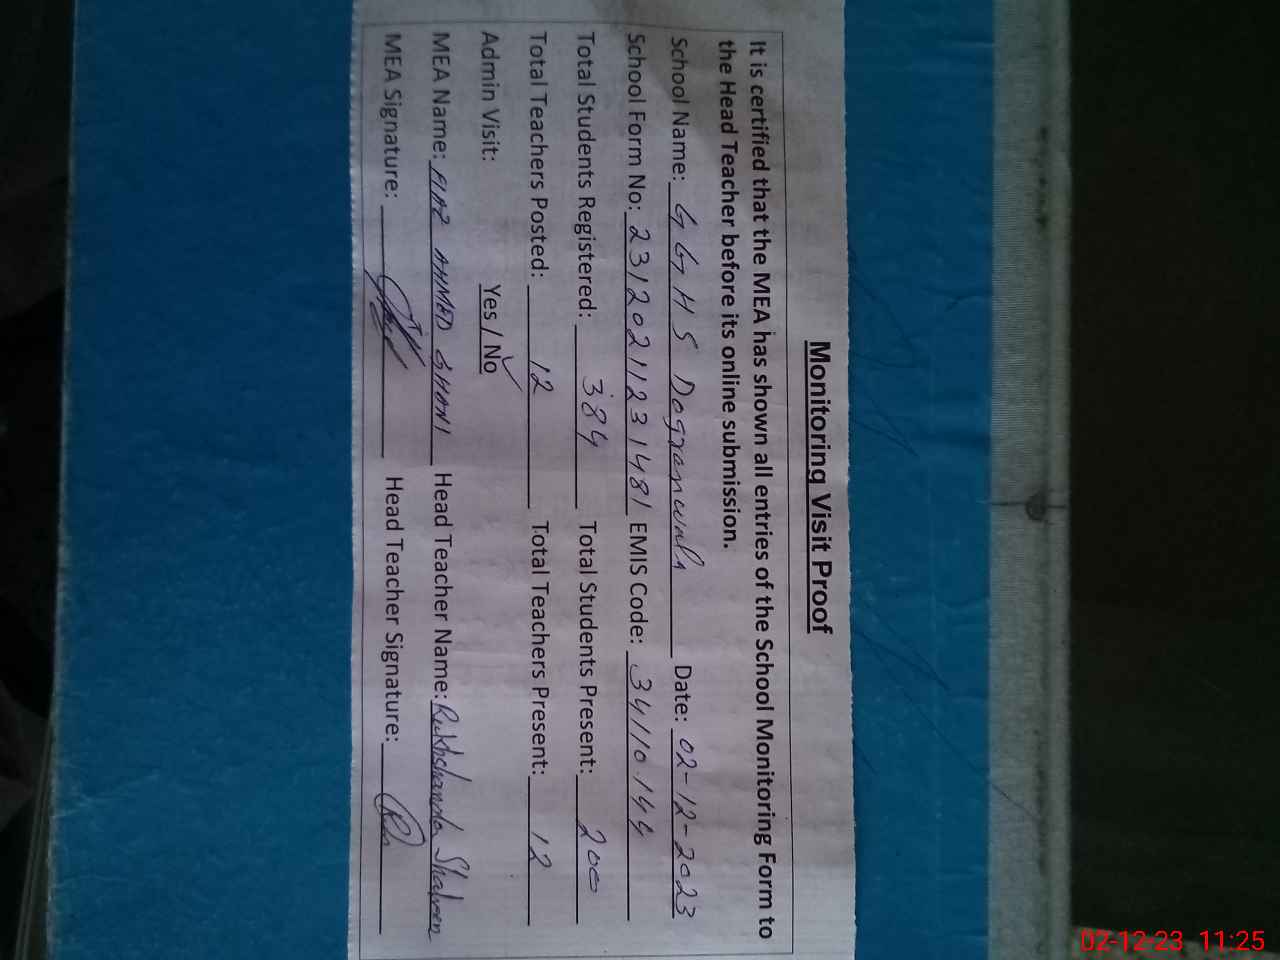 Monitoring Visit Proof
It is certified that the MEA has shown all entries of the School Monitoring Form to
the Head Teacher before its online submission.
School Name: GGHS Dogranwala Date: 02-12-2023
School Form No: 23120211231481 EMIS Code: 34110144
Total Students Registered: 384 Total Students Present: 200
Total Teachers Posted: 12 Total Teachers Present: 12
Admin Visit: Yes / No
MEA Name: AHMED GHANI Head Teacher Name: Rukhshanda Shaheen
MEA Signature: Head Teacher Signature:
02-12-23 11:25